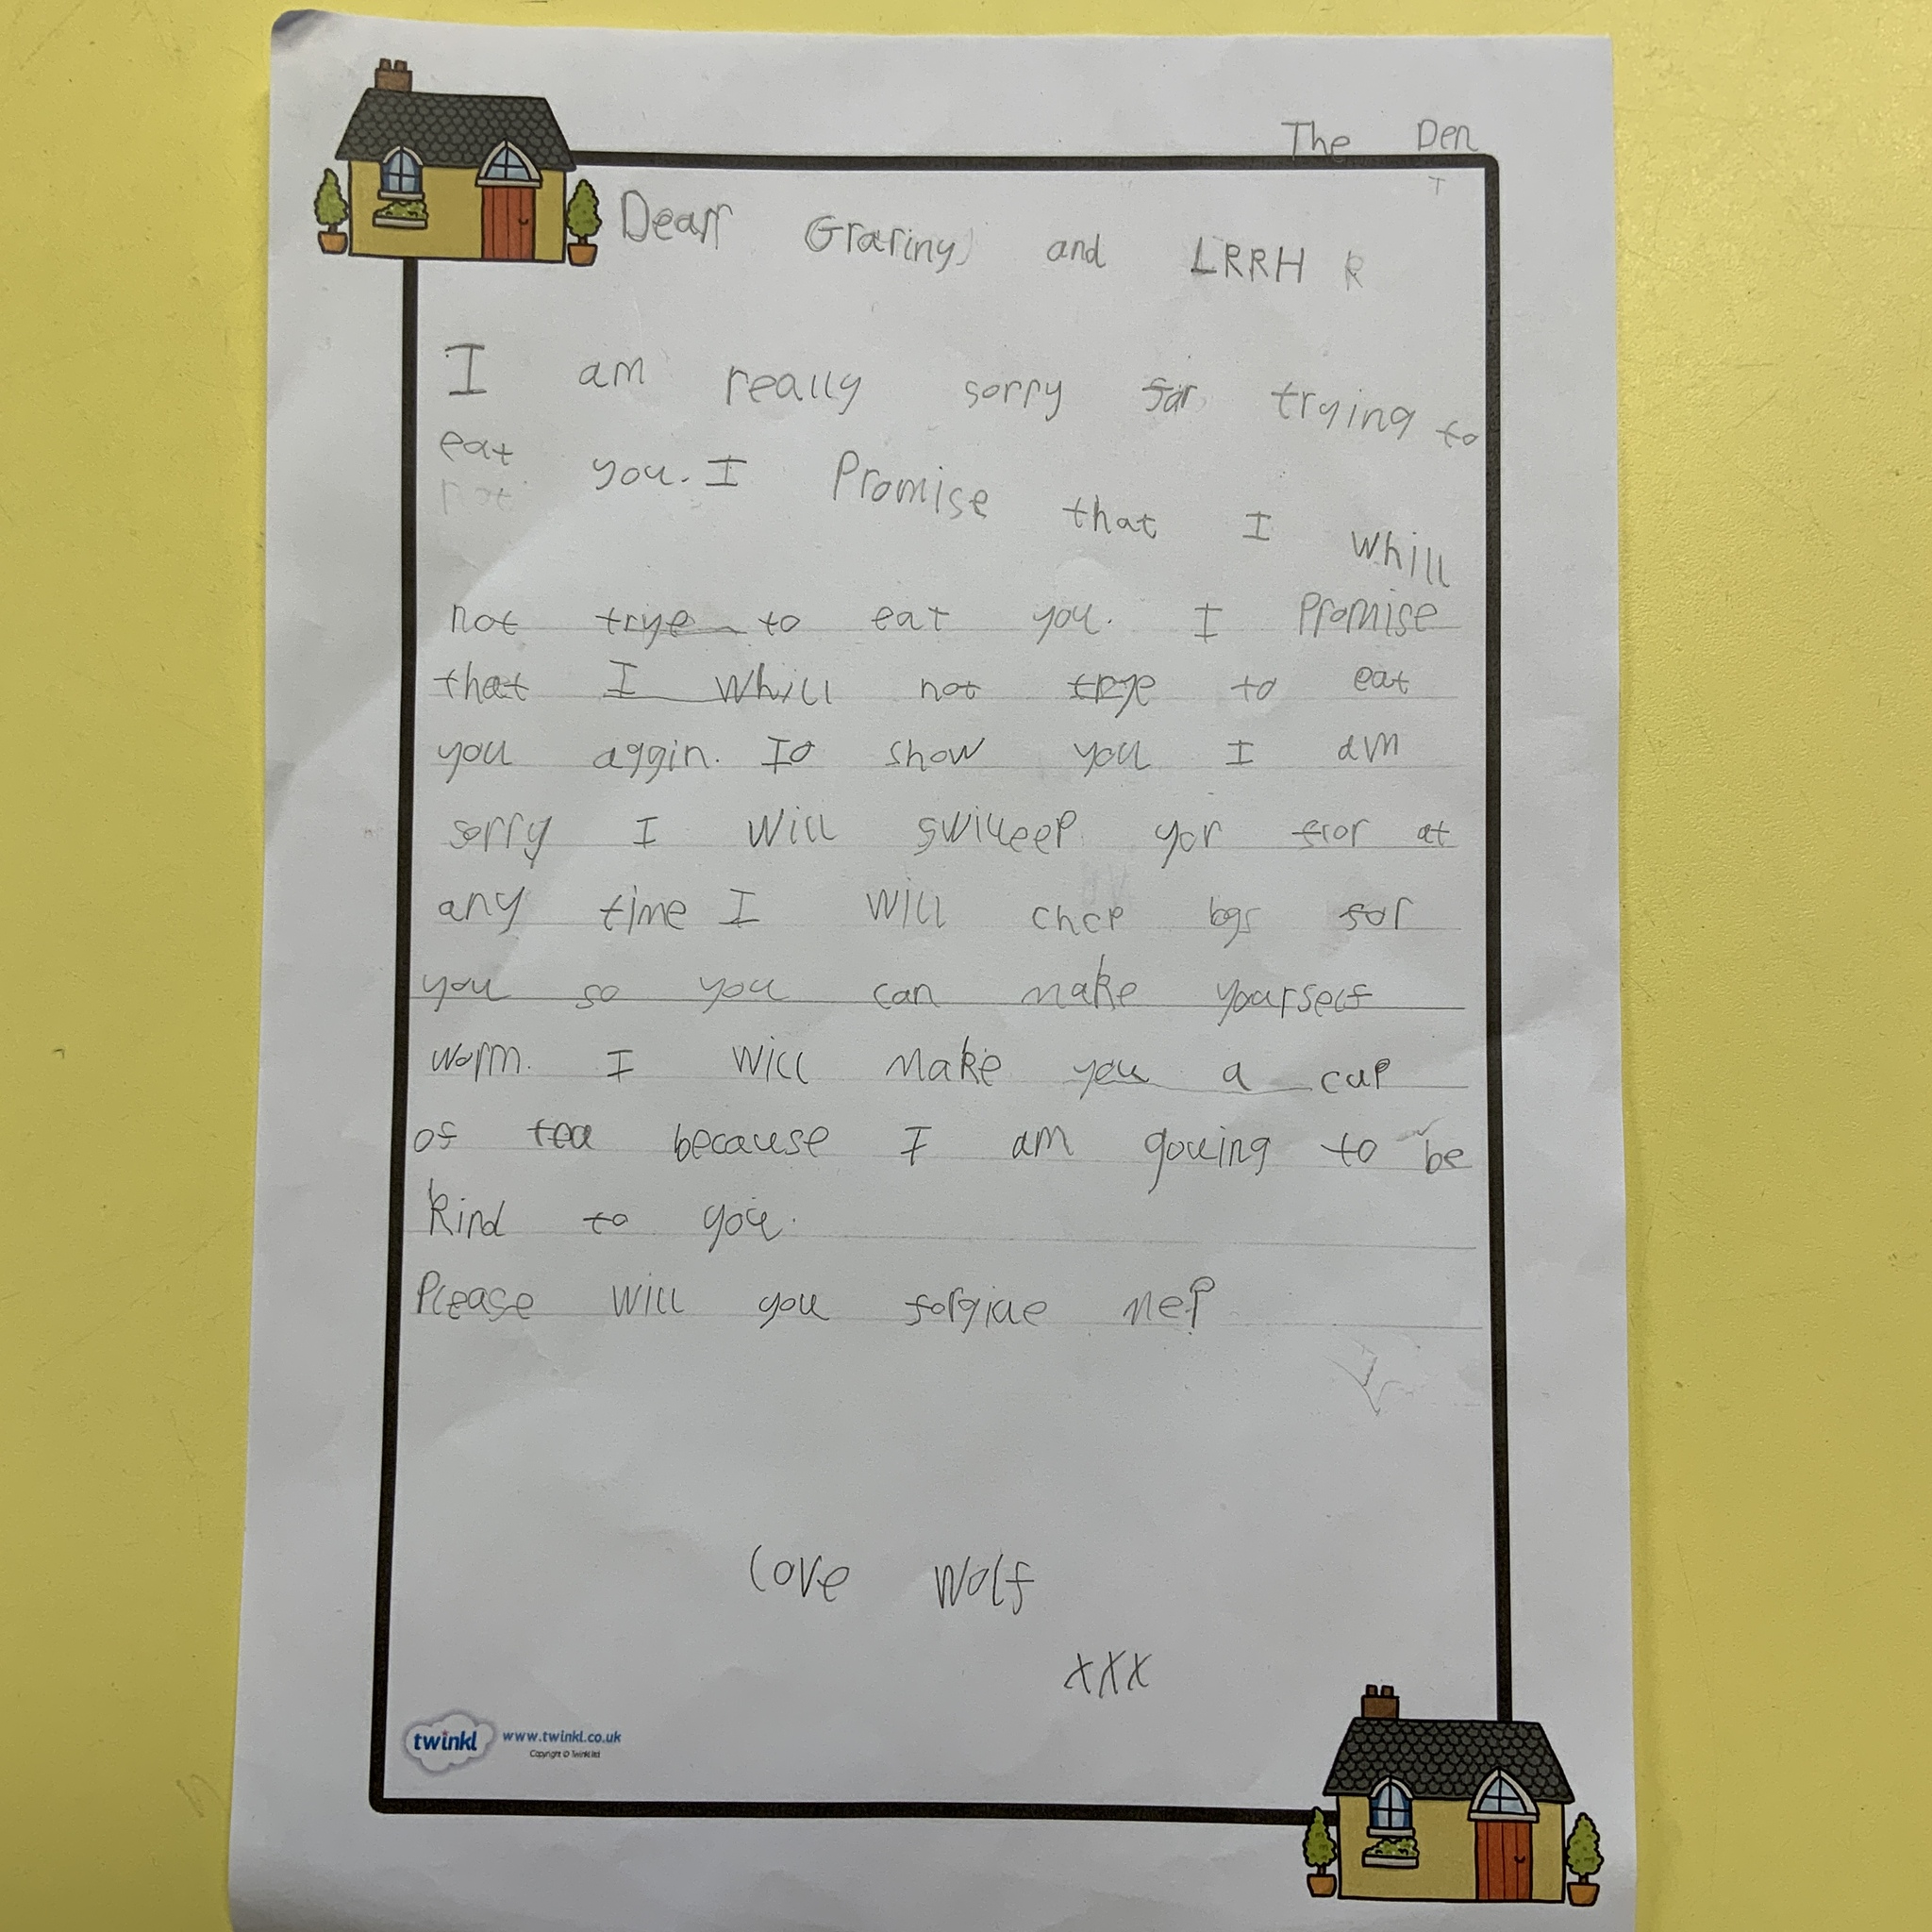 The Den
T
Dear Grariny and LRRH R
I am really sorry for trying to
eat you. I Promise that I whill
not
not trye to eat you. I Promise
that I whill not trye to eat
you aggin. To show you I am
sorry I will swilleep yor flor at
any time I will chop logs for
you so you can make yourself
worm. I will make you a cup
of tea because I am gouing to be
kind to you.
Please will you forgive me?
love Wolf
xxx
twinkl www.twinkl.co.uk
Copyright © Twinkl ltd